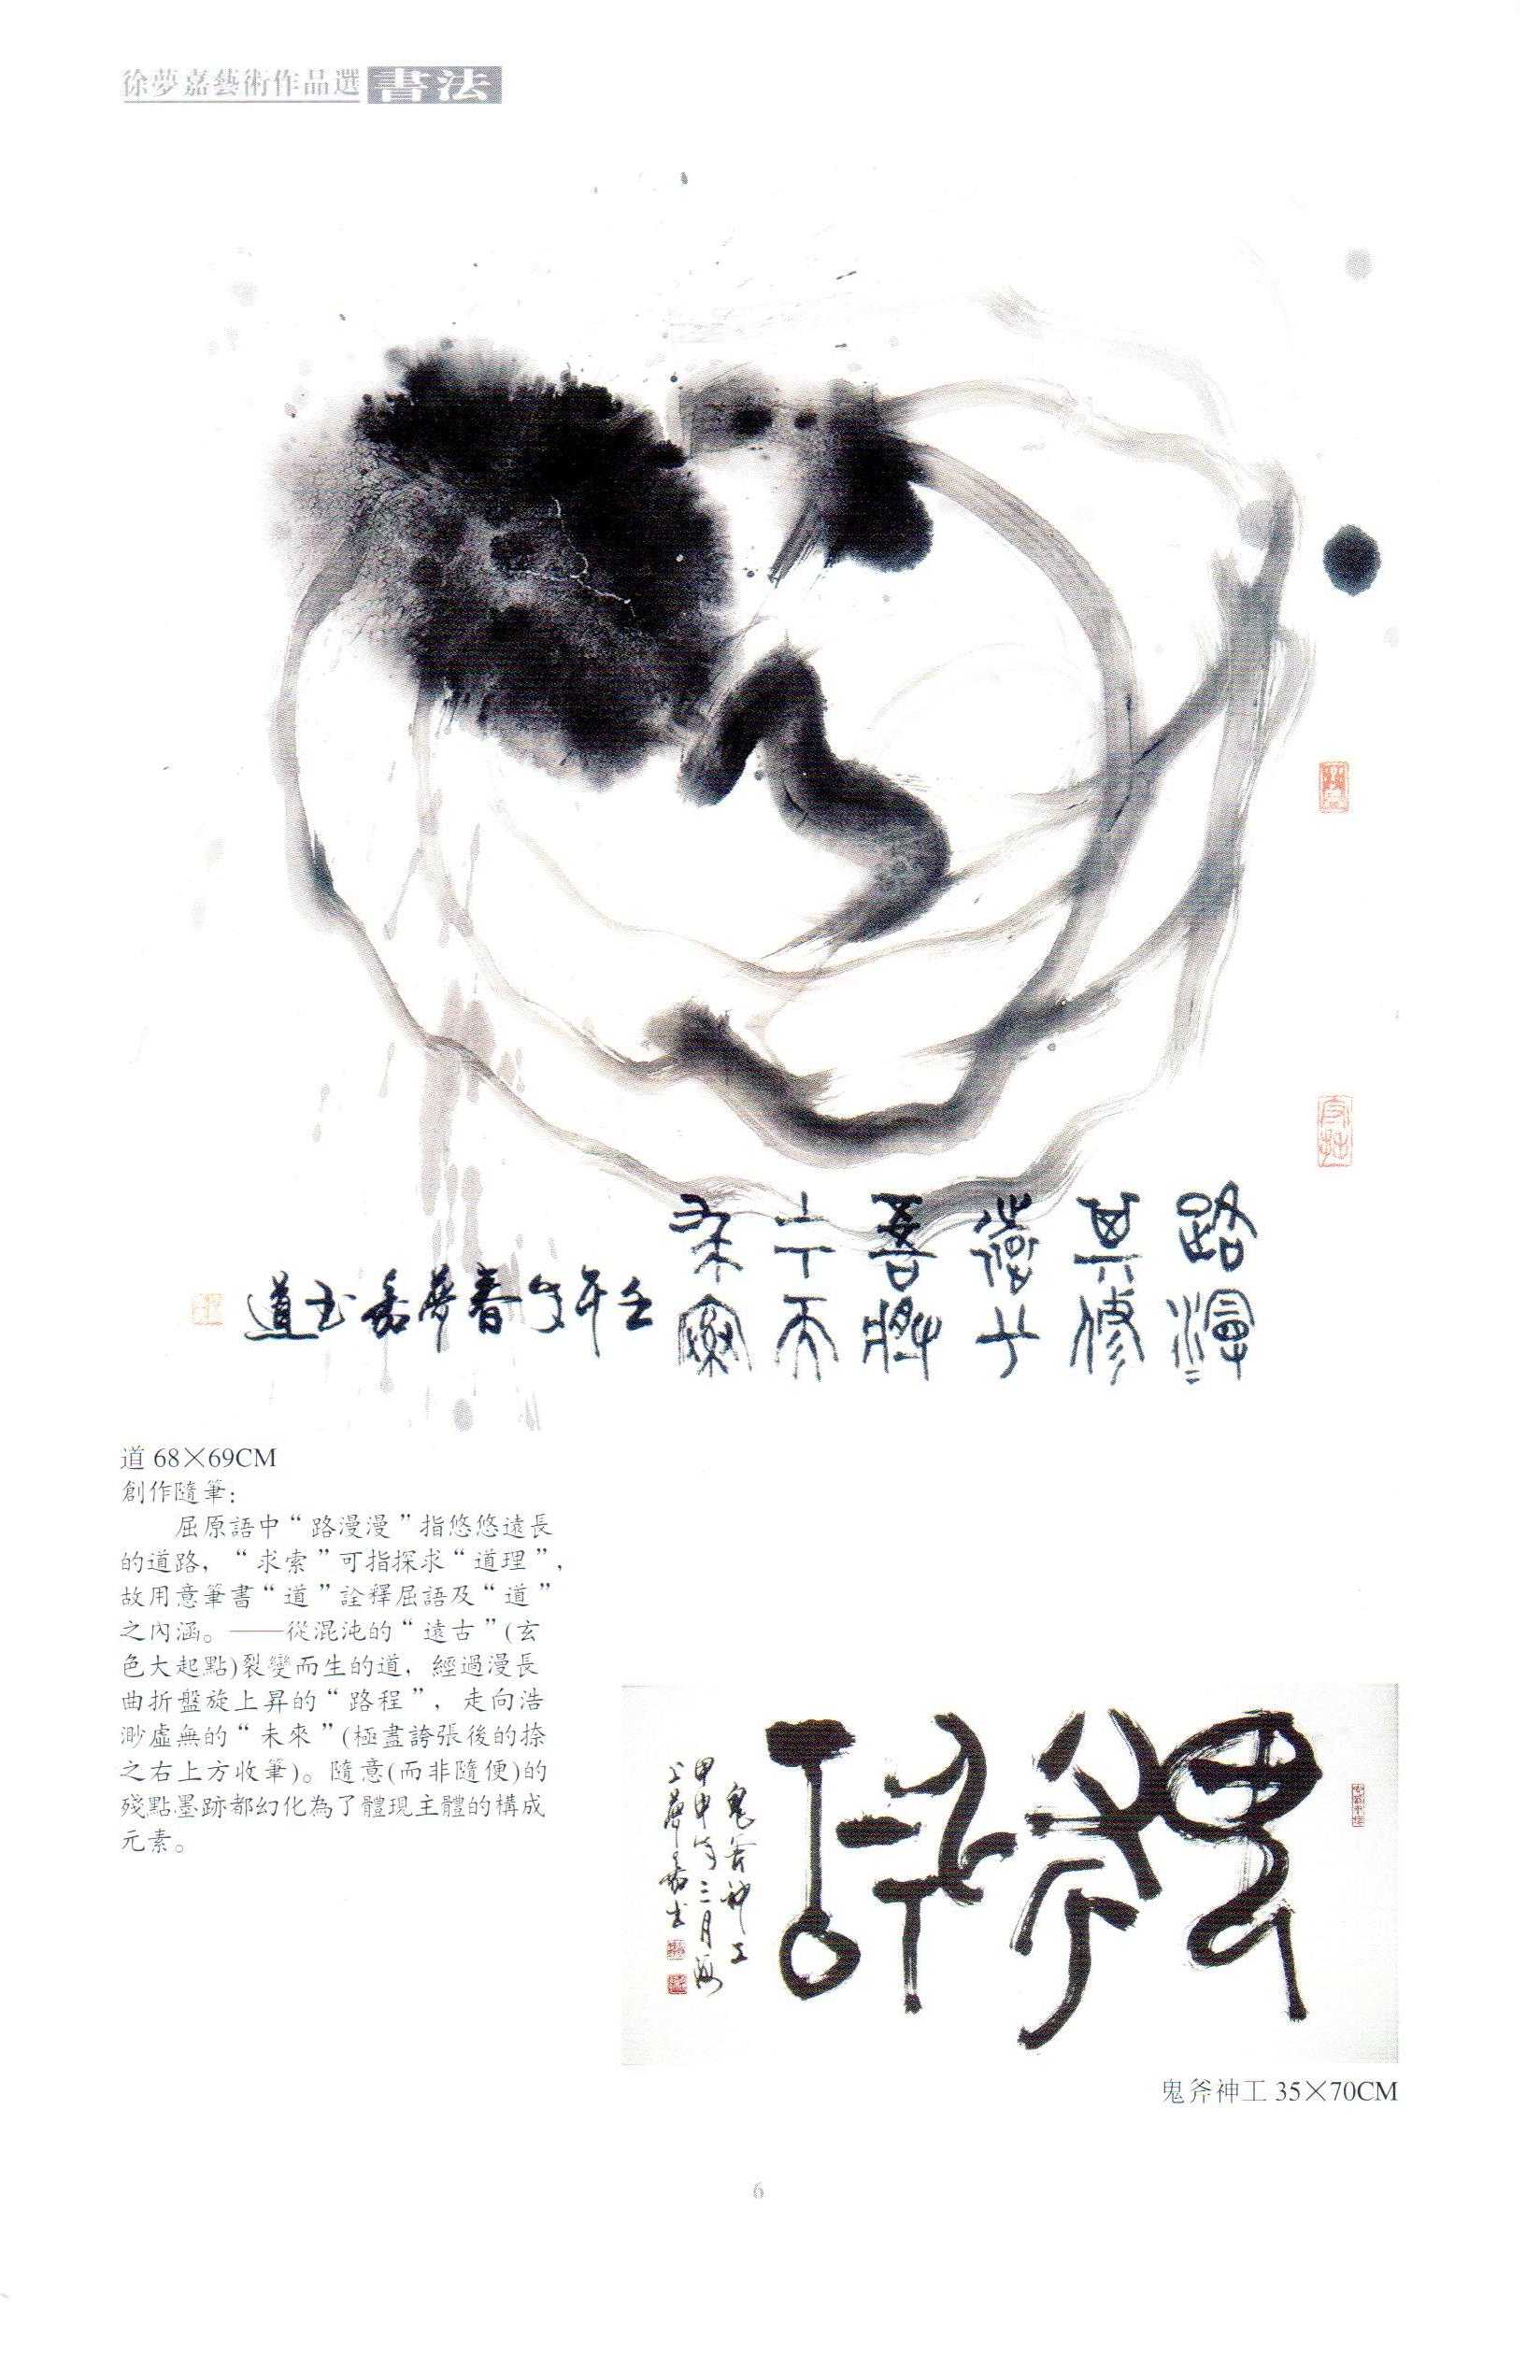 徐夢嘉藝術作品選 書法
路漫=
其修
遠兮
吾將
上下而
求索
壬午年春夢嘉書道
道 68×69CM
創作隨筆：
屈原語中“路漫漫”指悠悠遠長
的道路，“求索”可指探求“道理”，
故用意筆書“道”詮釋屈語及“道”
之內涵。——從混沌的“遠古”(玄
色大起點)裂變而生的道，經過漫長
曲折盤旋上昇的“路程”，走向浩
渺虛無的“未來”(極盡誇張後的捺
之右上方收筆)。隨意(而非隨便)的
殘點墨跡都幻化為了體現主體的構成
元素。
鬼斧神工
鬼斧神工
甲申年三月海
上夢嘉書
鬼斧神工 35×70CM
6